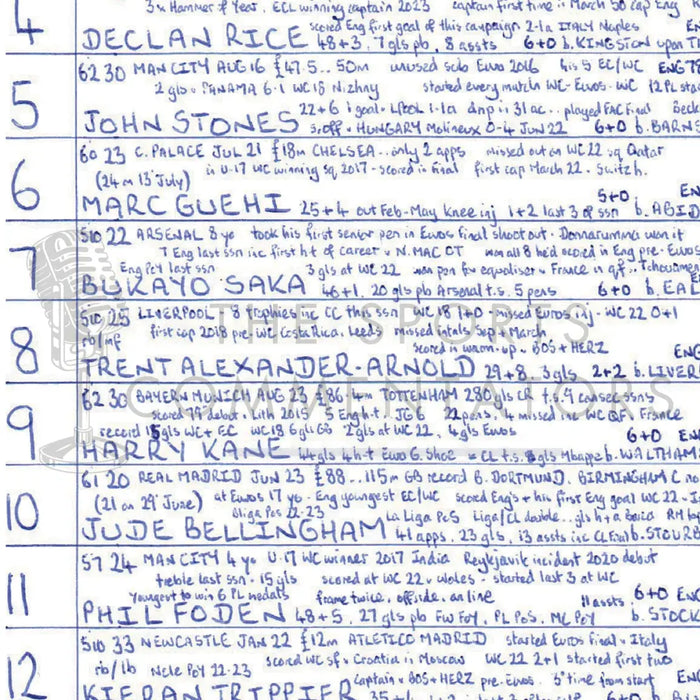 4
3x Hammer of Year. ECL winning captain 2023 captain first time is March 50 cap Eng
scored Eng first goal of this campaign 2-1a ITALY Naples
DECLAN RICE 48+3, 7 gls pb, 8 assts 6+0 b. KINGSTON upon
5
62 30 MAN CITY AUG 16 £47.5.. 50m unused sub Euro 2016 4 is 5 EC/WC ENG
2 gls v PANAMA 6-1 WC 18 Nizhny started every match WC-Euros-WC 12 PL
22+6 1 goal v Lpool 1-1a dnp in 31 ac.. played FAC Final
JOHN STONES s.off v HUNGARY Molineux 0-4 JUN 22 6+0 b. BARNS
6
60 23 C. PALACE JUL 21 £18m CHELSEA.. only 2 apps missed out on WC 22 sq Qatar
(24 on 13 July) in U-17 WC winning sq 2017 - scored in final first cap March 22 v Switz.
5+0
MARC GUEHI 25+4 out Feb-May knee inj 1+2 last 3 of ssn b. ABID
7
510 22 ARSENAL 8 yo took his first senior pen in Euros Final shoot out - Donnarumma won it
7 Eng last ssn inc first ht of career v N. MAC OT won all 8 he'd scored in Eng pre-Euros
Eng PoY last ssn 3 gls at WC 22 won pen for equaliser v France in qf
BUKAYO SAKA 46+1, 20 gls pb Arsenal t.s. 5 pens 6+0 b. EAL
8
510 25 LIVERPOOL 8 trophies inc CC this ssn WC 18 1+0 - missed Euros inj - WC 22 0+1
rb/mf first cap 2018 pre-WC Costa Rica, Leeds missed intnls Sept + March
scored in warm-up v BOS+HERZ ENG
TRENT ALEXANDER-ARNOLD 29+8, 3 gls 2+2 b. LIVER
9
62 30 BAYERN MUNICH AUG 23 £86.4m TOTTENHAM 280 gls CR t.s. 9 consec ssns
scored 79 debut v Lith 2015 5 Eng h.t JG 6 22 pens, 4 missed inc WC QF v France
record 15 gls WC+EC WC 18 6 gls GB 2 gls at WC 22, 4 gls Euros
6+0 EN
HARRY KANE 44 gls 4 h-t Euro G. Shoe = CL t.s. 8 gls Mbappe b. WALTHAM
10
61 20 REAL MADRID JUN 23 £88...115m GB record B. DORTMUND, BIRMINGHAM C
(21 on 29 June) at Euros 17 yo - Eng youngest EC/WC scored Eng's + his first Eng goal WC 22 v
Bliga PoS 22-23 La Liga PoS Liga/CL double.. gls h+a Barca
JUDE BELLINGHAM 41 apps, 23 gls, 13 assts inc CL Final b. STOURB
11
57 24 MAN CITY 4 yo U-17 WC winner 2017 India Reykjavik incident 2020 debut
treble last ssn - 15 gls scored at WC 22 v Wales - started last 3 at WC
Youngest to win 6 PL medals frame twice, offside, on line 11 assts 6+0 ENG
PHIL FODEN 48+5, 27 gls pb FW FoY, PL PoS, MC PoY b. STOC
12
510 33 NEWCASTLE JAN 22 £12m ATLETICO MADRID started Euros Final v Italy
rb/lb Ncle PoY 22-23 scored WC sf v Croatia in Moscow WC 22 2+1 started first two
captain v BOS+HERZ pre-Euros. 5' time from start
KIERAN TRIPPIER
THE SPORTS
COMMENTATORS